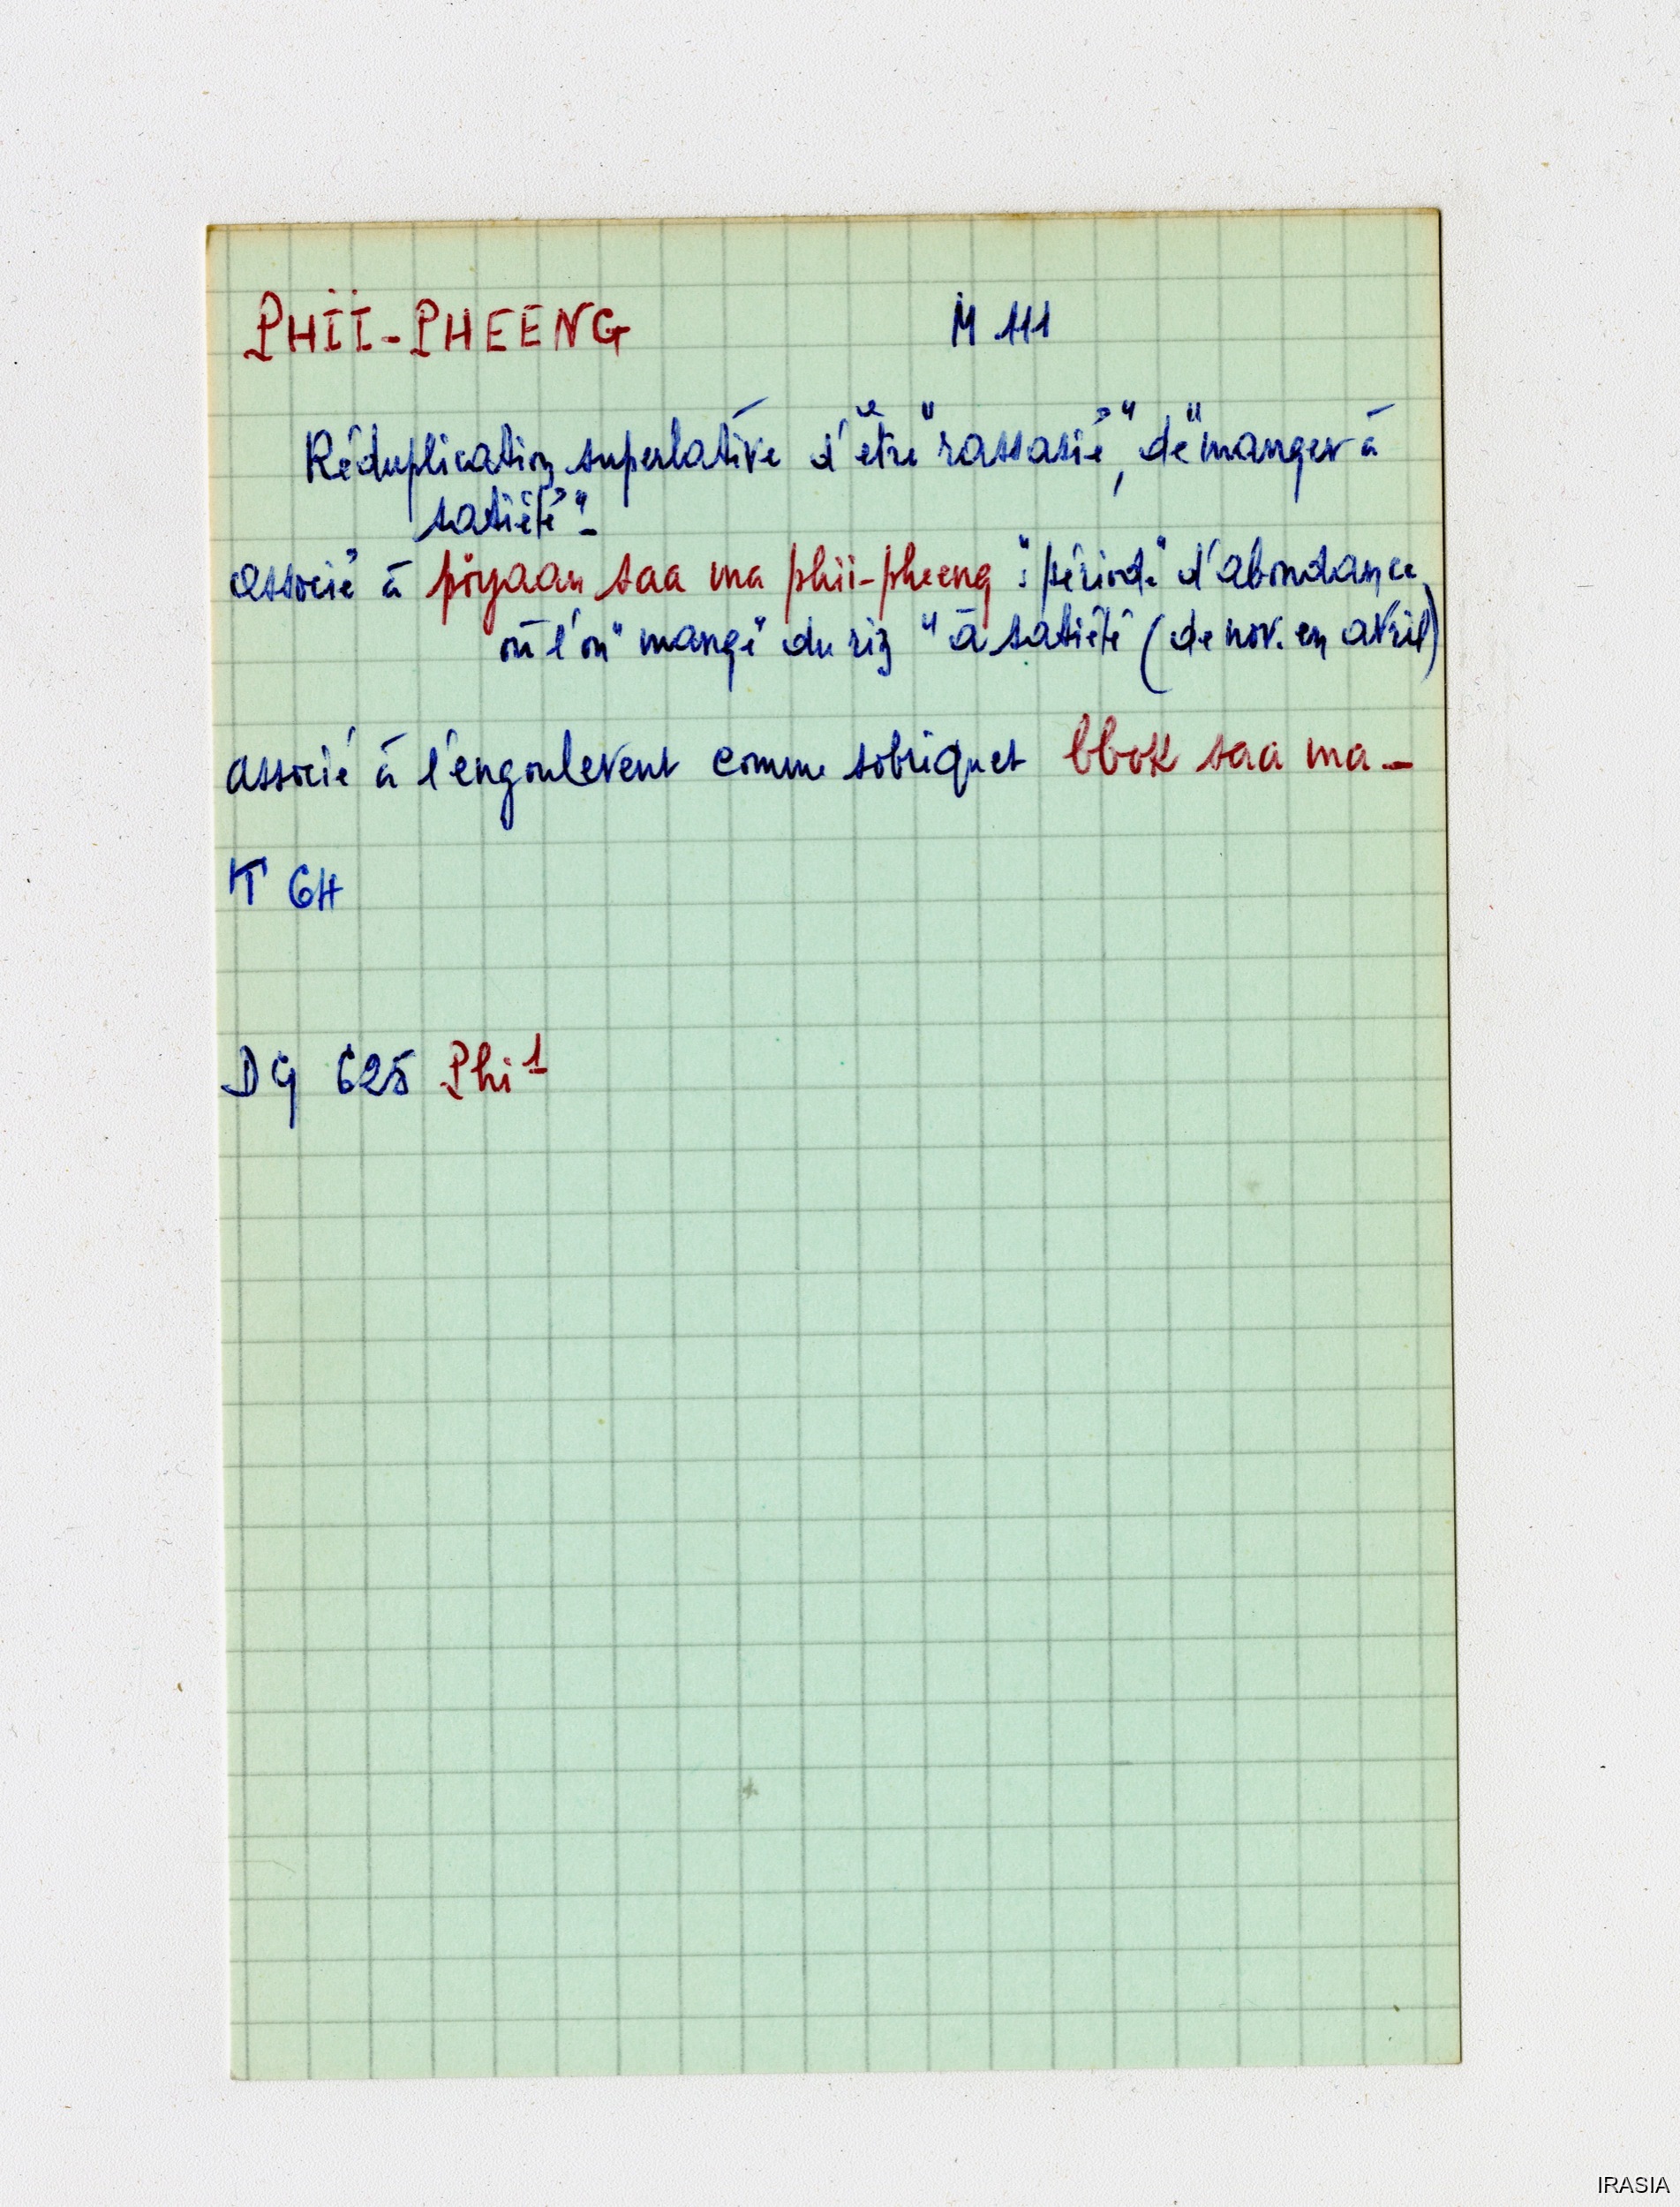 PHII-PHEENG M 111
Réduplication superlative d'être "rassasié", de "manger à
satiété".
associé à pöyaan saa ma phii-pheeng : "période" d'abondance
où l'on "mange" du riz "à satiété (de nov. en avril)
associé à l'engoulevent comme sobriquet bbok saa ma -
K 64
DG 625 Phi 1
IRASIA